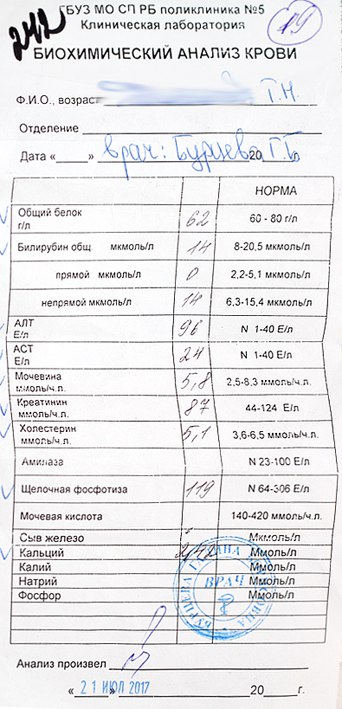 242
ГБУЗ МО СП РБ поликлиника №5
19
Клиническая лаборатория
БИОХИМИЧЕСКИЙ АНАЛИЗ КРОВИ
Ф.И.О., возраст Т.Н.
Отделение
Дата «____» врач: Бурцева 20 Г.Б.
НОРМА
Общий белок г/л 62 60 - 80 г/л
Билирубин общ мкмоль/л 14 8-20,5 мкмоль/л
прямой мкмоль/л 0 2,2-5,1 мкмоль/л
непрямой мкмоль/л 14 6,3-15,4 мкмоль/л
АЛТ Е/л 96 N 1-40 Е/л
АСТ Е/л 24 N 1-40 Е/л
Мочевина ммоль/ч.л. 5,8 2,5-8,3 ммоль/ч.л.
Креатинин ммоль/ч.л. 87 44-124 Е/л
Холестерин ммоль/ч.л. 5,1 3,6-6,5 ммоль/ч.л.
Амилаза N 23-100 Е/л
Щелочная фосфотиза 119 N 64-306 Е/л
Мочевая кислота 140-420 ммоль/ч.л.
Сыв железо Мкмоль/л
Кальций 2,42 Ммоль/л
Калий Ммоль/л
Натрий Ммоль/л
Фосфор Ммоль/л
БУРЦЕВА ГАЛИНА
ВРАЧ
Анализ произвел
«____» 21 ИЮЛ 2017 20____ г.